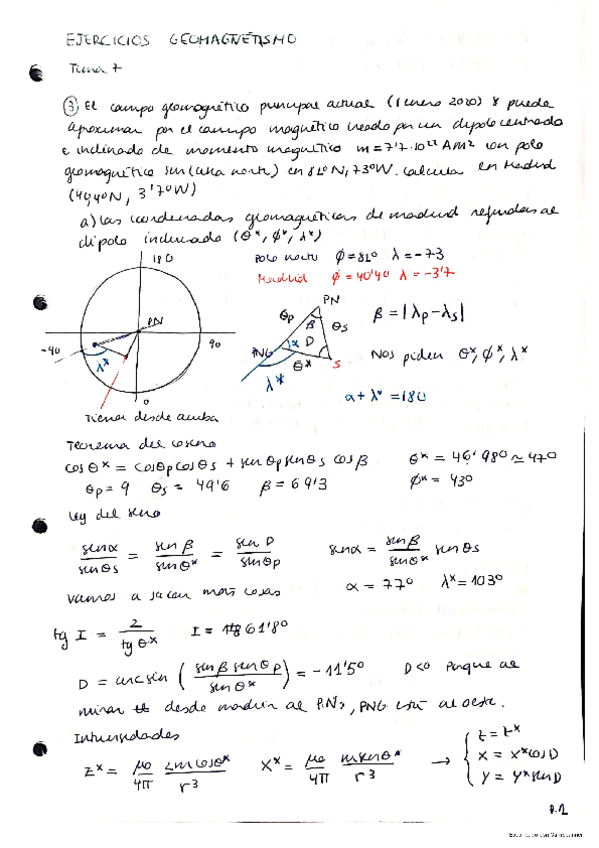 EJERCICIOS GEOMAGNETISMO
Tema 7
③ El campo geomagnético principal actual (1 enero 2020) se puede
aproximar por el campo magnético creado por un dipolo centrado
e inclinado de momento magnético m = 7'7·10²² Am² con polo
geomagnético sur (una norte) en 81°N, 73°W. Calcula en Madrid
(40,4°N, 3'70W)
a) Las coordenadas geomagnéticas de Madrid referidas al
dipolo inclinado (θ*, φ*, λ*)
Polo norte φ = 81° λ = -73
Madrid φ = 40'40 λ = -3'7
180
PN
-90
90
λ*
0
Tierra desde arriba
PN
θp
β
θs
PNG
α
D
θ*
S
λ*
β = |λp - λs|
Nos piden θ*, φ*, λ*
α + λ* = 180
Teorema del coseno
cos θ* = cosθp cosθs + senθp senθs cos β
θ* = 46'980 ≃ 470
θp = 9 θs = 49'6 β = 69'3
φ* = 430
Ley del seno
senα/senθs = sen β/senθ* = sen D/senθp
senα = sen β/senθ* senθs
α = 77° λ* = 103°
vamos a sacar más cosas
tg I = 2/tg θ* I = 61'8°
D = arcsin (senβ senθp/senθ*) = -11'5° D<0 porque al
mirar desde madrid al P.N, PNG está al oeste.
Intensidades
Z* = μ0/4π 2m cosθ*/r³ X* = μ0/4π m senθ*/r³ → { Z = Z*
X = X* cos D
Y = Y* sen D
P.1